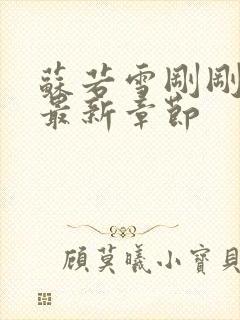 蘇若雪剛剛
最新章節
顧莫曦小寶貝